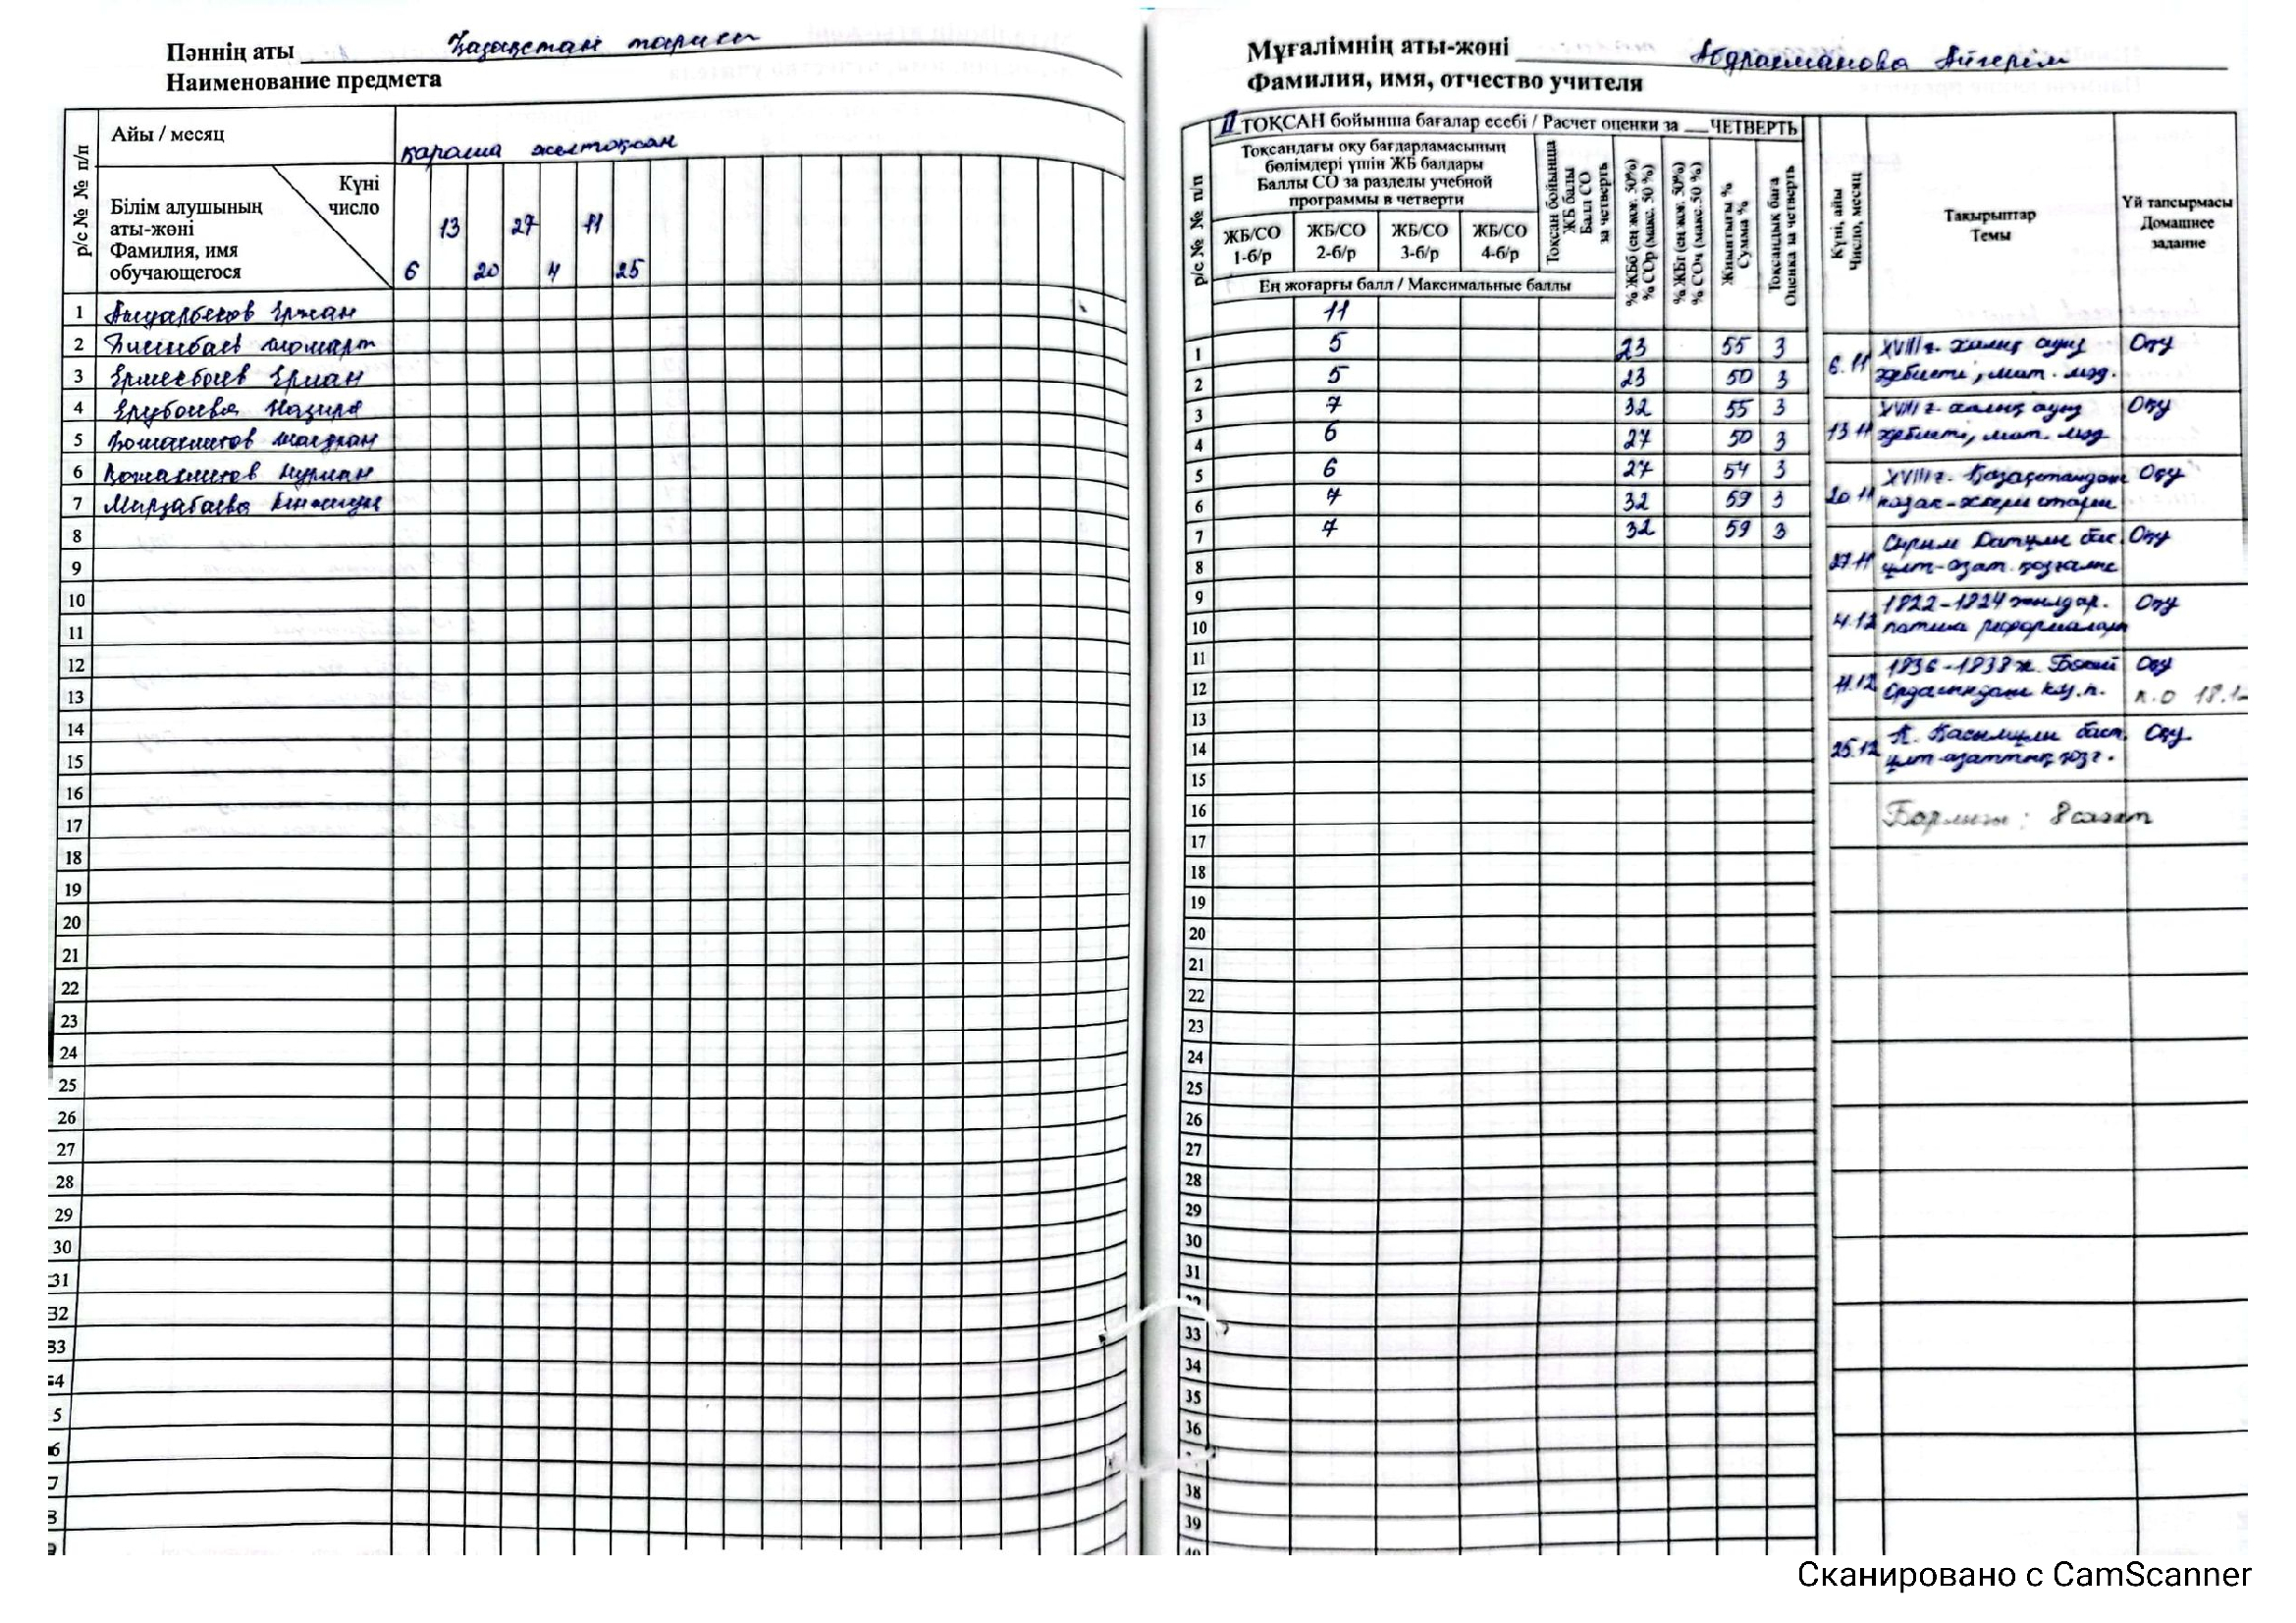 Пәннің аты Қазақстан тарихы
Наименование предмета
р/с № № п/п
Айы / месяц
қараша желтоқсан
Күні
число
Білім алушының
аты-жөні
Фамилия, имя
обучающегося
6 13 20 27 4 11 25
1 Ержан
2
3 Ерлан
4 Ерубаева Назира
5
6 Нұрлан
7 Мырзабаева
8
9
10
11
12
13
14
15
16
17
18
19
20
21
22
23
24
25
26
27
28
29
30
31
32
33
Мұғалімнің аты-жөні Абдрахманова Айгерім
Фамилия, имя, отчество учителя
р/с № № п/п
II ТОҚСАН бойынша бағалар есебі / Расчет оценки за ___ ЧЕТВЕРТЬ
Тоқсандағы оқу бағдарламасының
бөлімдері үшін ЖБ балдары
Баллы СО за разделы учебной
программы в четверти
ЖБ/СО 1-б/р
ЖБ/СО 2-б/р
ЖБ/СО 3-б/р
ЖБ/СО 4-б/р
Ең жоғарғы балл / Максимальные баллы
Тоқсан бойынша
ЖБ балы
Балл СО
за четверть
% ЖБб (ең жоғ. 50%)
% СОр (макс. 50 %)
% ЖБт (ең жоғ. 50%)
% СОч (макс. 50 %)
Жиынтығы %
Сумма %
Тоқсандық баға
Оценка за четверть
11
1 5 23 55 3
2 5 23 50 3
3 7 32 55 3
4 6 27 50 3
5 6 27 54 3
6 7 32 59 3
7 7 32 59 3
8
9
10
11
12
13
14
15
16
17
18
19
20
21
22
23
24
25
26
27
28
29
30
31
33
34
35
36
38
39
Күні, айы
Число, месяц
Тақырыптар
Темы
Үй тапсырмасы
Домашнее
задание
6.11 XVIII ғ. халық ауыз Оқу
әдебиеті, мат. мәд.
13.11 XVIII ғ. халық ауыз Оқу
әдебиеті, мат. мәд
20.11 XVIII ғ. Қазақстандағы Оқу
27.11 Сырым Датұлы бас. Оқу
ұлт-азат. қозғалыс
4.12 1822-1824 жылдар. Оқу
патша реформалары
11.12 1836-1838 ж. Бөкей Оқу
Ордасындағы к. п.
п.о 18.12
25.12 К. Қасымұлы баст. Оқу
ұлт-азаттық қозғ.
Барлығы: 8 сағат
Сканировано с CamScanner